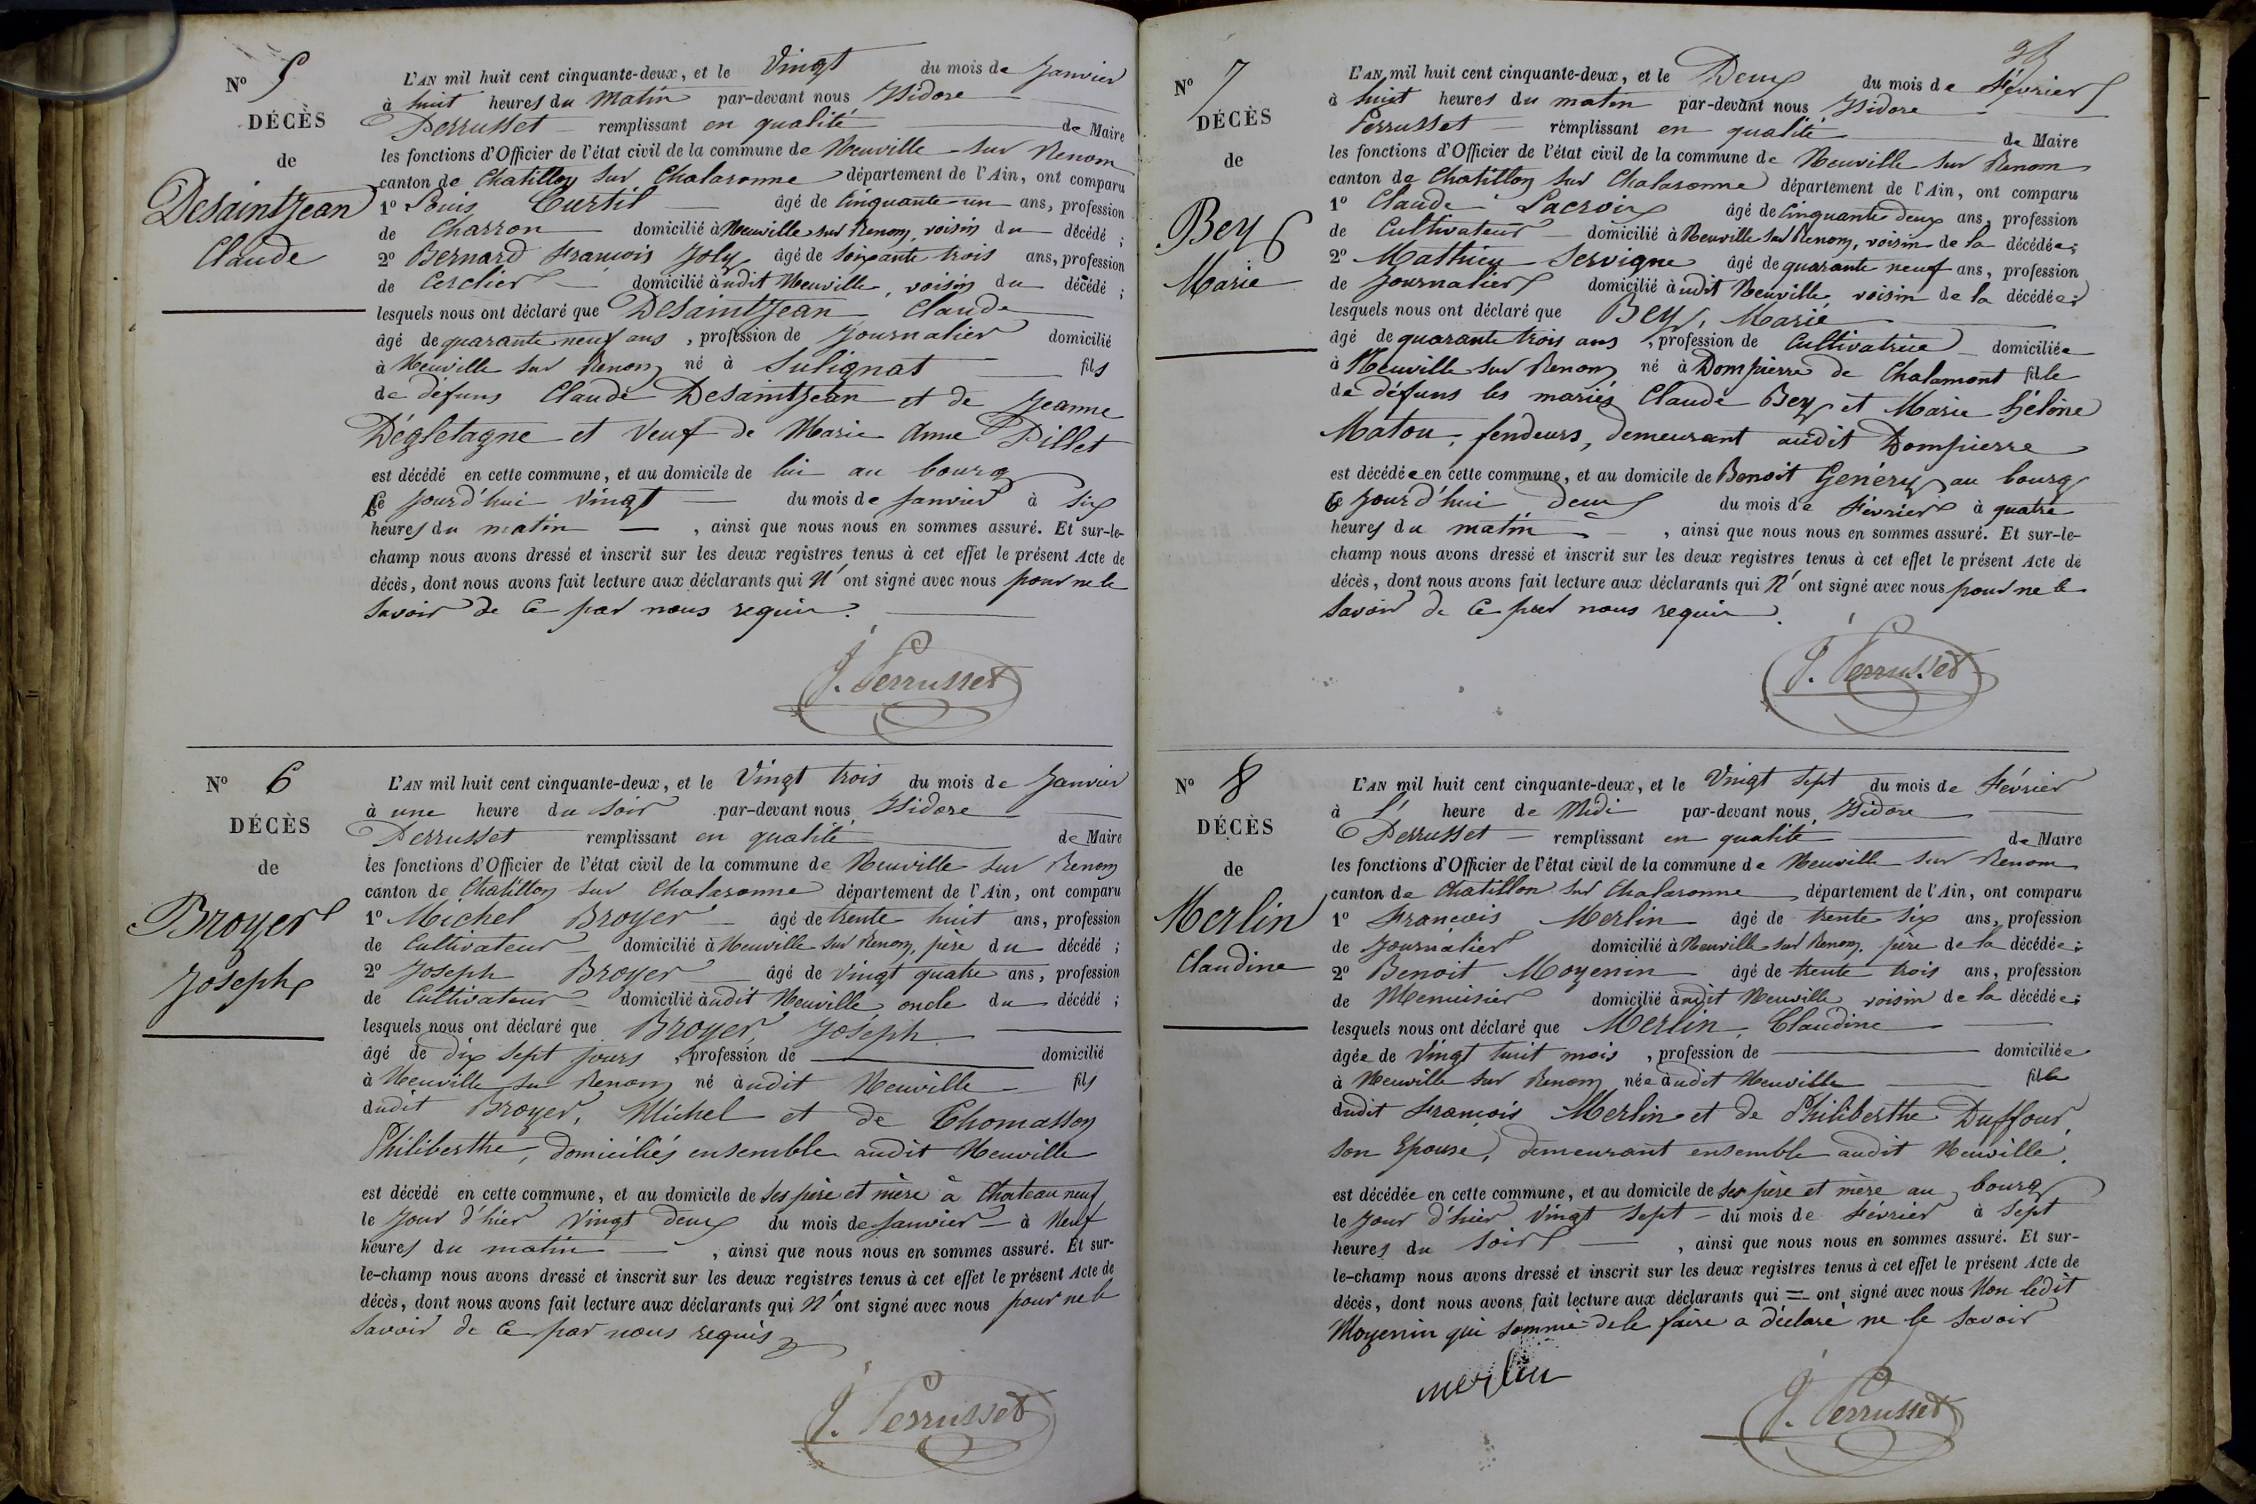 N° 5
DÉCÈS
de
Desaintjean
Claude
L'AN mil huit cent cinquante-deux, et le Vingt du mois de Janvier
à huit heures du Matin par-devant nous Isidore
Perrusset remplissant en qualité de Maire
les fonctions d'Officier de l'état civil de la commune de Neuville sur Renom
canton de Chatillon sur Chalaronne département de l'Ain, ont comparu
1° Louis Curtil âgé de Cinquante un ans, profession
de Charron domicilié à Neuville sur Renom, voisin du décédé ;
2° Bernard François Joly âgé de soixante trois ans, profession
de Cerclier domicilié audit Neuville, voisin du décédé ;
lesquels nous ont déclaré que Desaintjean Claude
âgé de quarante neuf ans , profession de Journalier domicilié
à Neuville sur Renom né à Sulignat fils
de défuns Claude Desaintjean et de Jeanne
Dégletagne et Veuf de Marie Anne Pillet
est décédé en cette commune, et au domicile de lui au bourg
Ce jourd'hui Vingt du mois de Janvier à six
heures du matin , ainsi que nous nous en sommes assuré. Et sur-le-
champ nous avons dressé et inscrit sur les deux registres tenus à cet effet le présent Acte de
décès, dont nous avons fait lecture aux déclarants qui N'ont signé avec nous pour ne le
Savoir de Ce par nous requis.
J. Perrusset
N° 6
DÉCÈS
de
Broyer
Joseph
L'AN mil huit cent cinquante-deux, et le Vingt trois du mois de Janvier
à une heure du Soir par-devant nous Isidore
Perrusset remplissant en qualité de Maire
les fonctions d'Officier de l'état civil de la commune de Neuville sur Renom
canton de Chatillon sur Chalaronne département de l'Ain, ont comparu
1° Michel Broyer âgé de trente huit ans, profession
de Cultivateur domicilié à Neuville sur Renom, père du décédé ;
2° Joseph Broyer âgé de Vingt quatre ans, profession
de Cultivateur domicilié audit Neuville, oncle du décédé ;
lesquels nous ont déclaré que Broyer, Joseph
âgé de dix sept jours , profession de domicilié
à Neuville sur Renom né audit Neuville fils
dudit Broyer, Michel et de Thomasson
Philiberthe, domiciliés ensemble audit Neuville
est décédé en cette commune, et au domicile de ses père et mère à Chateauneuf
le Jour d'hier Vingt deux du mois de Janvier à Neuf
heures du matin , ainsi que nous nous en sommes assuré. Et sur-
le-champ nous avons dressé et inscrit sur les deux registres tenus à cet effet le présent Acte de
décès, dont nous avons fait lecture aux déclarants qui N'ont signé avec nous pour ne le
Savoir de Ce par nous requis
J. Perrusset
N° 7
DÉCÈS
de
Bey
Marie
L'AN mil huit cent cinquante-deux, et le Deux du mois de Février
à huit heures du matin par-devant nous Isidore
Perrusset remplissant en qualité de Maire
les fonctions d'Officier de l'état civil de la commune de Neuville sur Renom
canton de Chatillon sur Chalaronne département de l'Ain, ont comparu
1° Claude Lacroix âgé de Cinquante deux ans, profession
de Cultivateur domicilié à Neuville sur Renom, voisin de la décédée ;
2° Mathieu Servigne âgé de quarante neuf ans, profession
de Journalier domicilié audit Neuville voisin de la décédée ;
lesquels nous ont déclaré que Bey, Marie
âgé de quarante trois ans , profession de Cultivatrice domiciliée
à Neuville sur Renom né à Dompierre de Chalamont fille
de défuns les mariés Claude Bey et Marie Hélène
Maton, fendeurs, demeurant audit Dompierre
est décédée en cette commune, et au domicile de Benoit Genéry au bourg
Ce jourd'hui deux du mois de Février à quatre
heures du matin , ainsi que nous nous en sommes assuré. Et sur-le-
champ nous avons dressé et inscrit sur les deux registres tenus à cet effet le présent Acte de
décès, dont nous avons fait lecture aux déclarants qui N'ont signé avec nous pour ne le
Savoir de Ce par nous requis.
J. Perrusset
N° 8
DÉCÈS
de
Merlin
Claudine
L'AN mil huit cent cinquante-deux, et le Vingt sept du mois de Février
à l' heure de Midi par-devant nous Isidore
Perrusset remplissant en qualité de Maire
les fonctions d'Officier de l'état civil de la commune de Neuville sur Renom
canton de Chatillon sur Chalaronne département de l'Ain, ont comparu
1° François Merlin âgé de trente six ans, profession
de Journalier domicilié à Neuville sur Renom, père de la décédée ;
2° Benoit Moyenin âgé de trente trois ans, profession
de Menuisier domicilié audit Neuville voisin de la décédée ;
lesquels nous ont déclaré que Merlin, Claudine
âgée de Vingt huit mois , profession de domiciliée
à Neuville sur Renom née audit Neuville fille
dudit François Merlin et de Philiberthe Duffour,
son Epouse, demeurant ensemble audit Neuville.
est décédée en cette commune, et au domicile de ses père et mère au bourg
le Jour d'hier Vingt sept du mois de Février à sept
heures du Soir , ainsi que nous nous en sommes assuré. Et sur-
le-champ nous avons dressé et inscrit sur les deux registres tenus à cet effet le présent Acte de
décès, dont nous avons fait lecture aux déclarants qui = ont signé avec nous Non ledit
Moyenin qui sommé de le faire a déclaré ne le Savoir
merlin
J. Perrusset